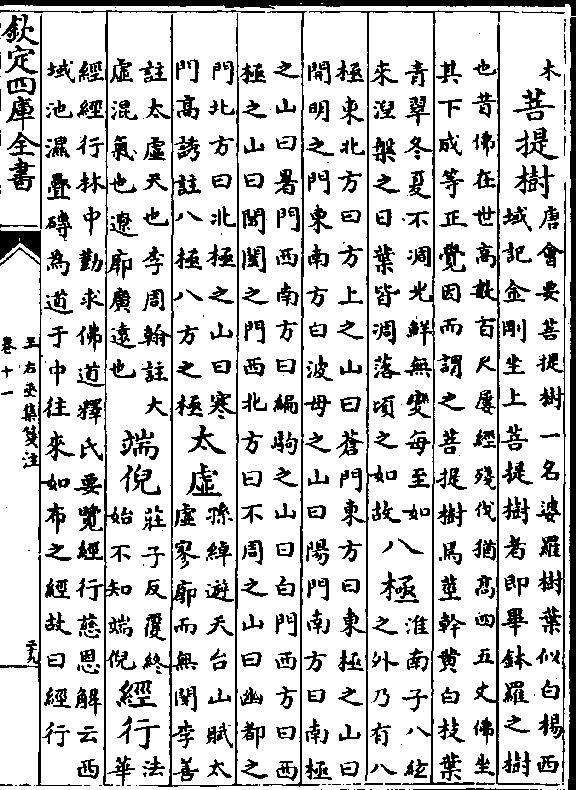 木
菩提樹
唐會要菩提樹一名婆羅樹葉似白楊西
域記金剛坐上菩提樹者即畢鉢羅之樹
也昔佛在世高數百尺屢經殘伐猶高四五丈佛坐
其下成等正覺因而謂之菩提樹焉莖幹黄白枝葉
青翠冬夏不凋光鮮無變每至如
來湼槃之日葉皆凋落頃之如故
八極
淮南子八紘
之外乃有八
極東北方曰方上之山曰蒼門東方曰東極之山曰
開明之門東南方曰波母之山曰陽門南方曰南極
之山曰暑門西南方曰編駒之山曰白門西方曰西
極之山曰閶闔之門西北方曰不周之山曰幽都之
門北方曰北極之山曰寒
門高誘註八極八方之極
太虛
孫綽遊天台山賦太
虛寥廓而無閡李善
註太虛天也李周翰註大
虛混氣也遼廓廣遠也
端倪
莊子反覆終
始不知端倪
經行
法
華
經經行林中勤求佛道釋氏要覽經行慈恩解云西
域池濕疊磚為道于中往來如布之經故曰經行
欽定四庫全書
王右丞集箋注
卷十一